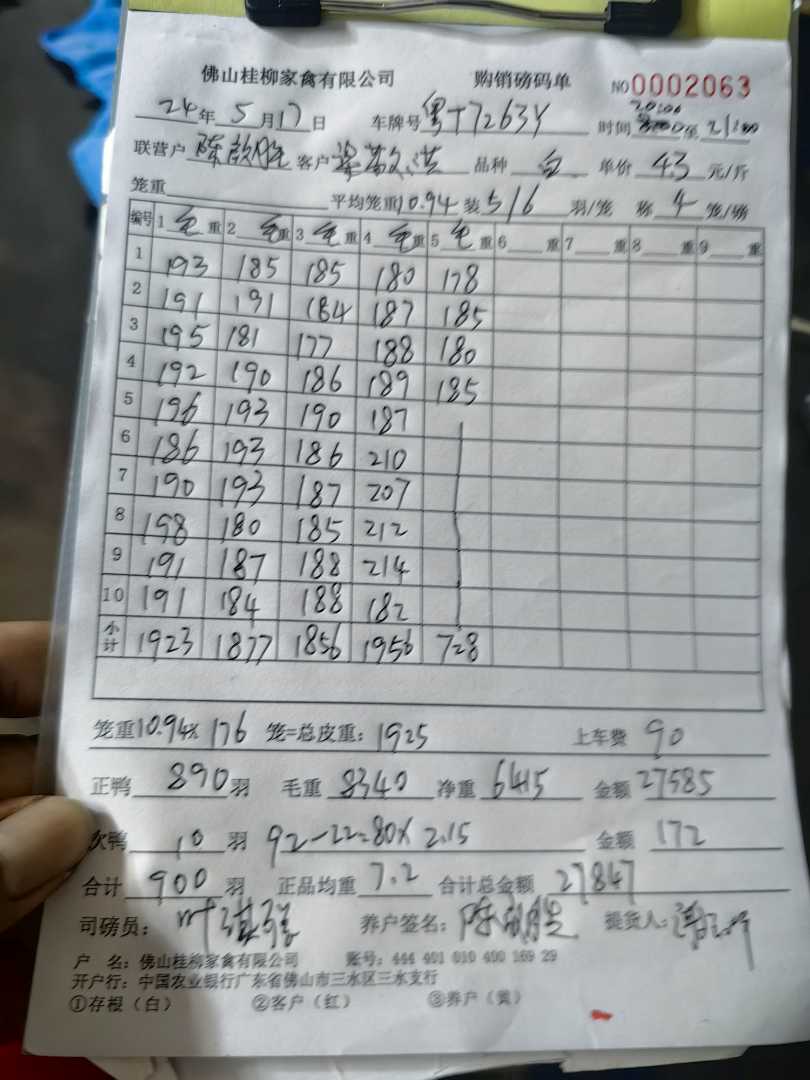 佛山桂柳家禽有限公司 购销磅码单 NO0002063
24年5月17日 车牌号粤T7263Y 时间 20:00至21:00
联营户 陈 客户 品种 白 单价 4.3 元/斤
笼重 平均笼重10.94 装5/6 羽/笼 称 4 笼/磅
编号 1毛重 2毛重 3毛重 4毛重 5毛重 6重 7重 8重 9重
1 193 185 185 180 178
2 191 191 184 187 185
3 195 181 177 188 180
4 192 190 186 189 185
5 196 193 190 187
6 186 193 186 210
7 190 193 187 207
8 198 180 185 212
9 191 187 188 214
10 191 184 188 182
小计 1923 1877 1856 1956 728
笼重10.94×176 笼=总皮重:1925 上车费 90
正鸭 890羽 毛重 8340 净重 6415 金额 27585
次鸭 10 羽 92-22=80×2.15 金额 172
合计 900 羽 正品均重 7.2 合计总金额 27847
司磅员: 叶 养户签名: 陈 提货人:
户 名: 佛山桂柳家禽有限公司 账号: 444 401 010 400 169 29
开户行: 中国农业银行广东省佛山市三水区三水支行
①存根(白) ②客户(红) ③养户(黄)